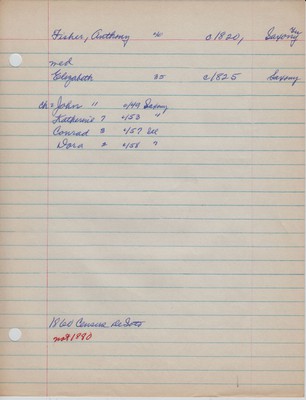 Fisher, Anthony 40 c/1820, Saxony
med
Elizabeth 35 c/1825 Saxony
ch: John 11 c/49 Saxony
Katherine 7 c/53 "
Conrad 3 c/57 Ill
Dora 2 c/58 "
1860 Census DeSoto
not 1880